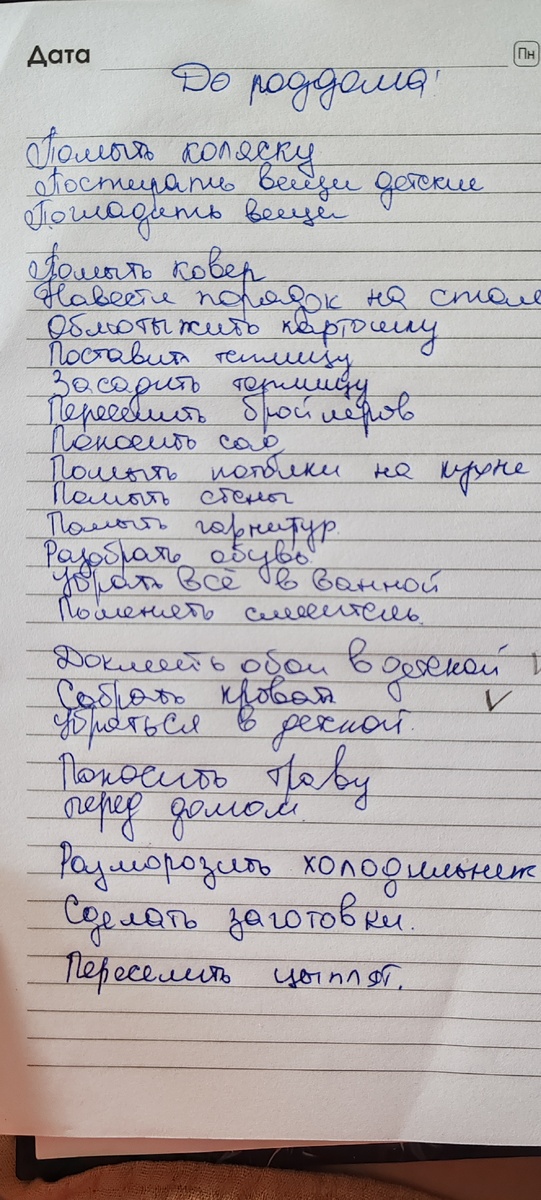 Дата
Пн
До роддома!
Помыть коляску
Постирать вещи детские
Погладить вещи
Помыть ковер
Навести порядок на столе
Обмотыжить картошку
Поставить теплицу
Засадить теплицу
Переселить бройлеров
Покосить сад
Помыть потолки на кухне
Помыть стены
Помыть гарнитур.
Разобрать обувь.
Убрать всё в ванной
Поменять смеситель.
Доклеить обои в детской
Собрать кровать
Убраться в детской.
Покосить траву
перед домом.
Разморозить холодильник
Сделать заготовки.
Переселить цыплят.